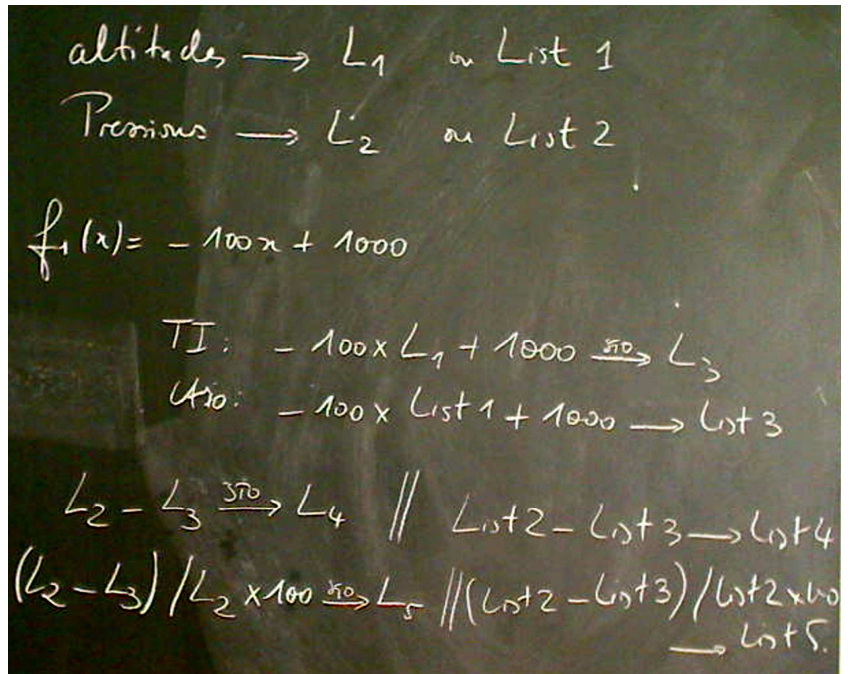 altitudes → L1 ou List 1
Pressions → L2 ou List 2
f1(x) = - 100x + 1000
TI: - 100 x L1 + 1000 STO→ L3
Casio: - 100 x List 1 + 1000 → List 3
L2 - L3 STO→ L4 // List 2 - List 3 → List 4
(L2 - L3) / L2 x 100 STO→ L5 // (List 2 - List 3) / List 2 x 100
→ List 5.